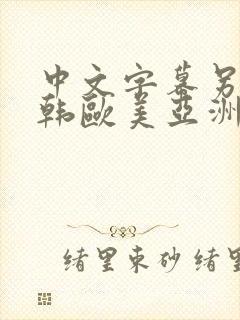 中文字幕另
韩歐美亞洲
绪里束砂绪里